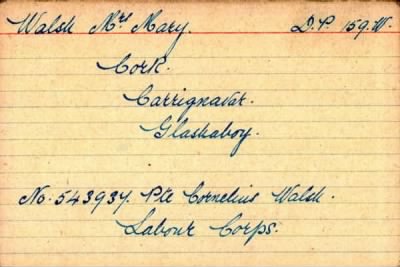 Walsh Mrs Mary. D.P. 159.W.
Cork.
Carrignavar.
Glashaboy.
No. 543937. Pte Cornelius Walsh.
Labour Corps.